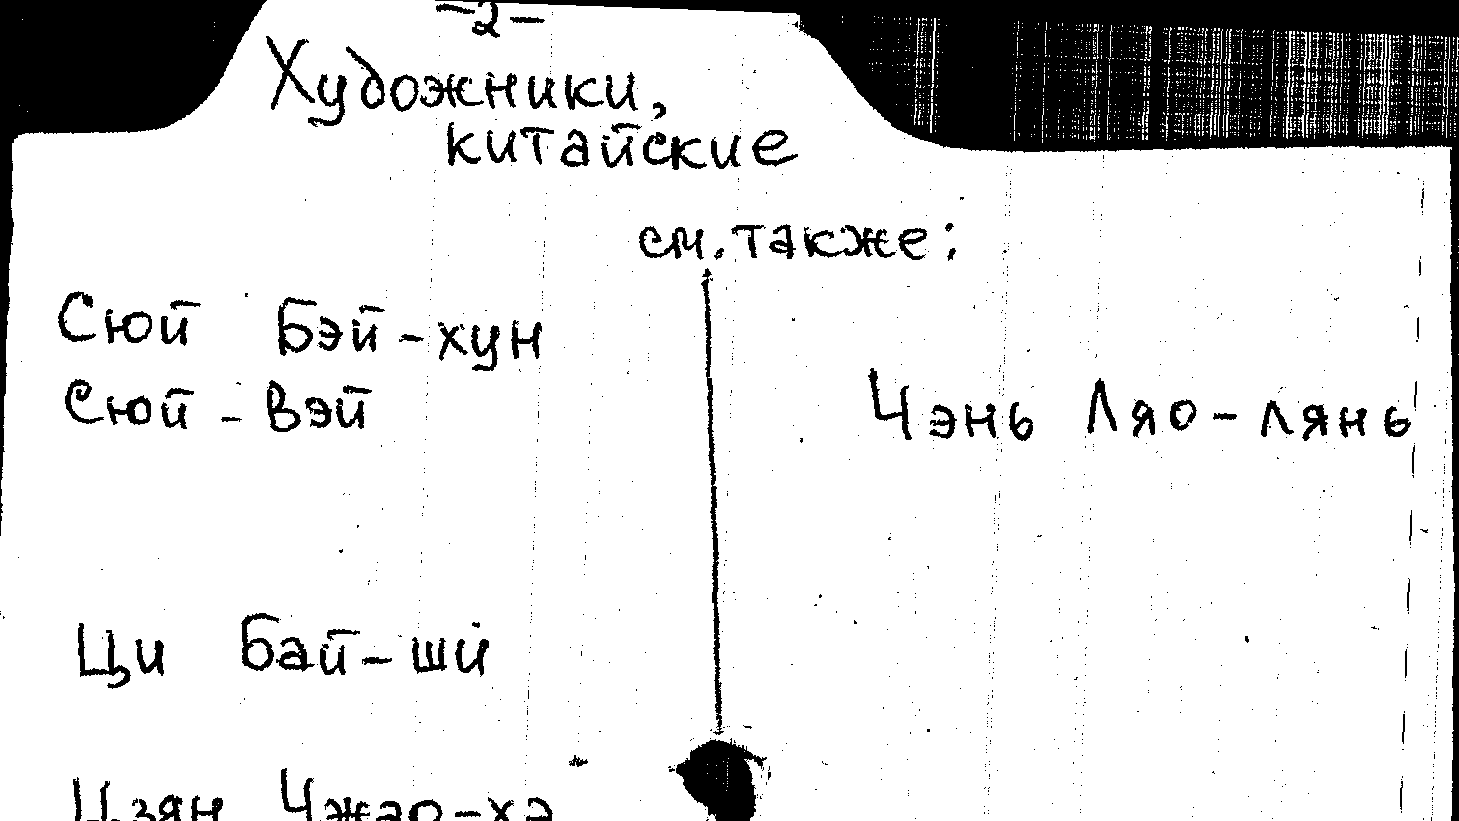 -2-
Художники,
китайские
см. также:
Сюй Бэй-хун
Сюй-Вэй
Чэнь Ляо-лянь
Ци Бай-ши
Цзян Чжао-хэ